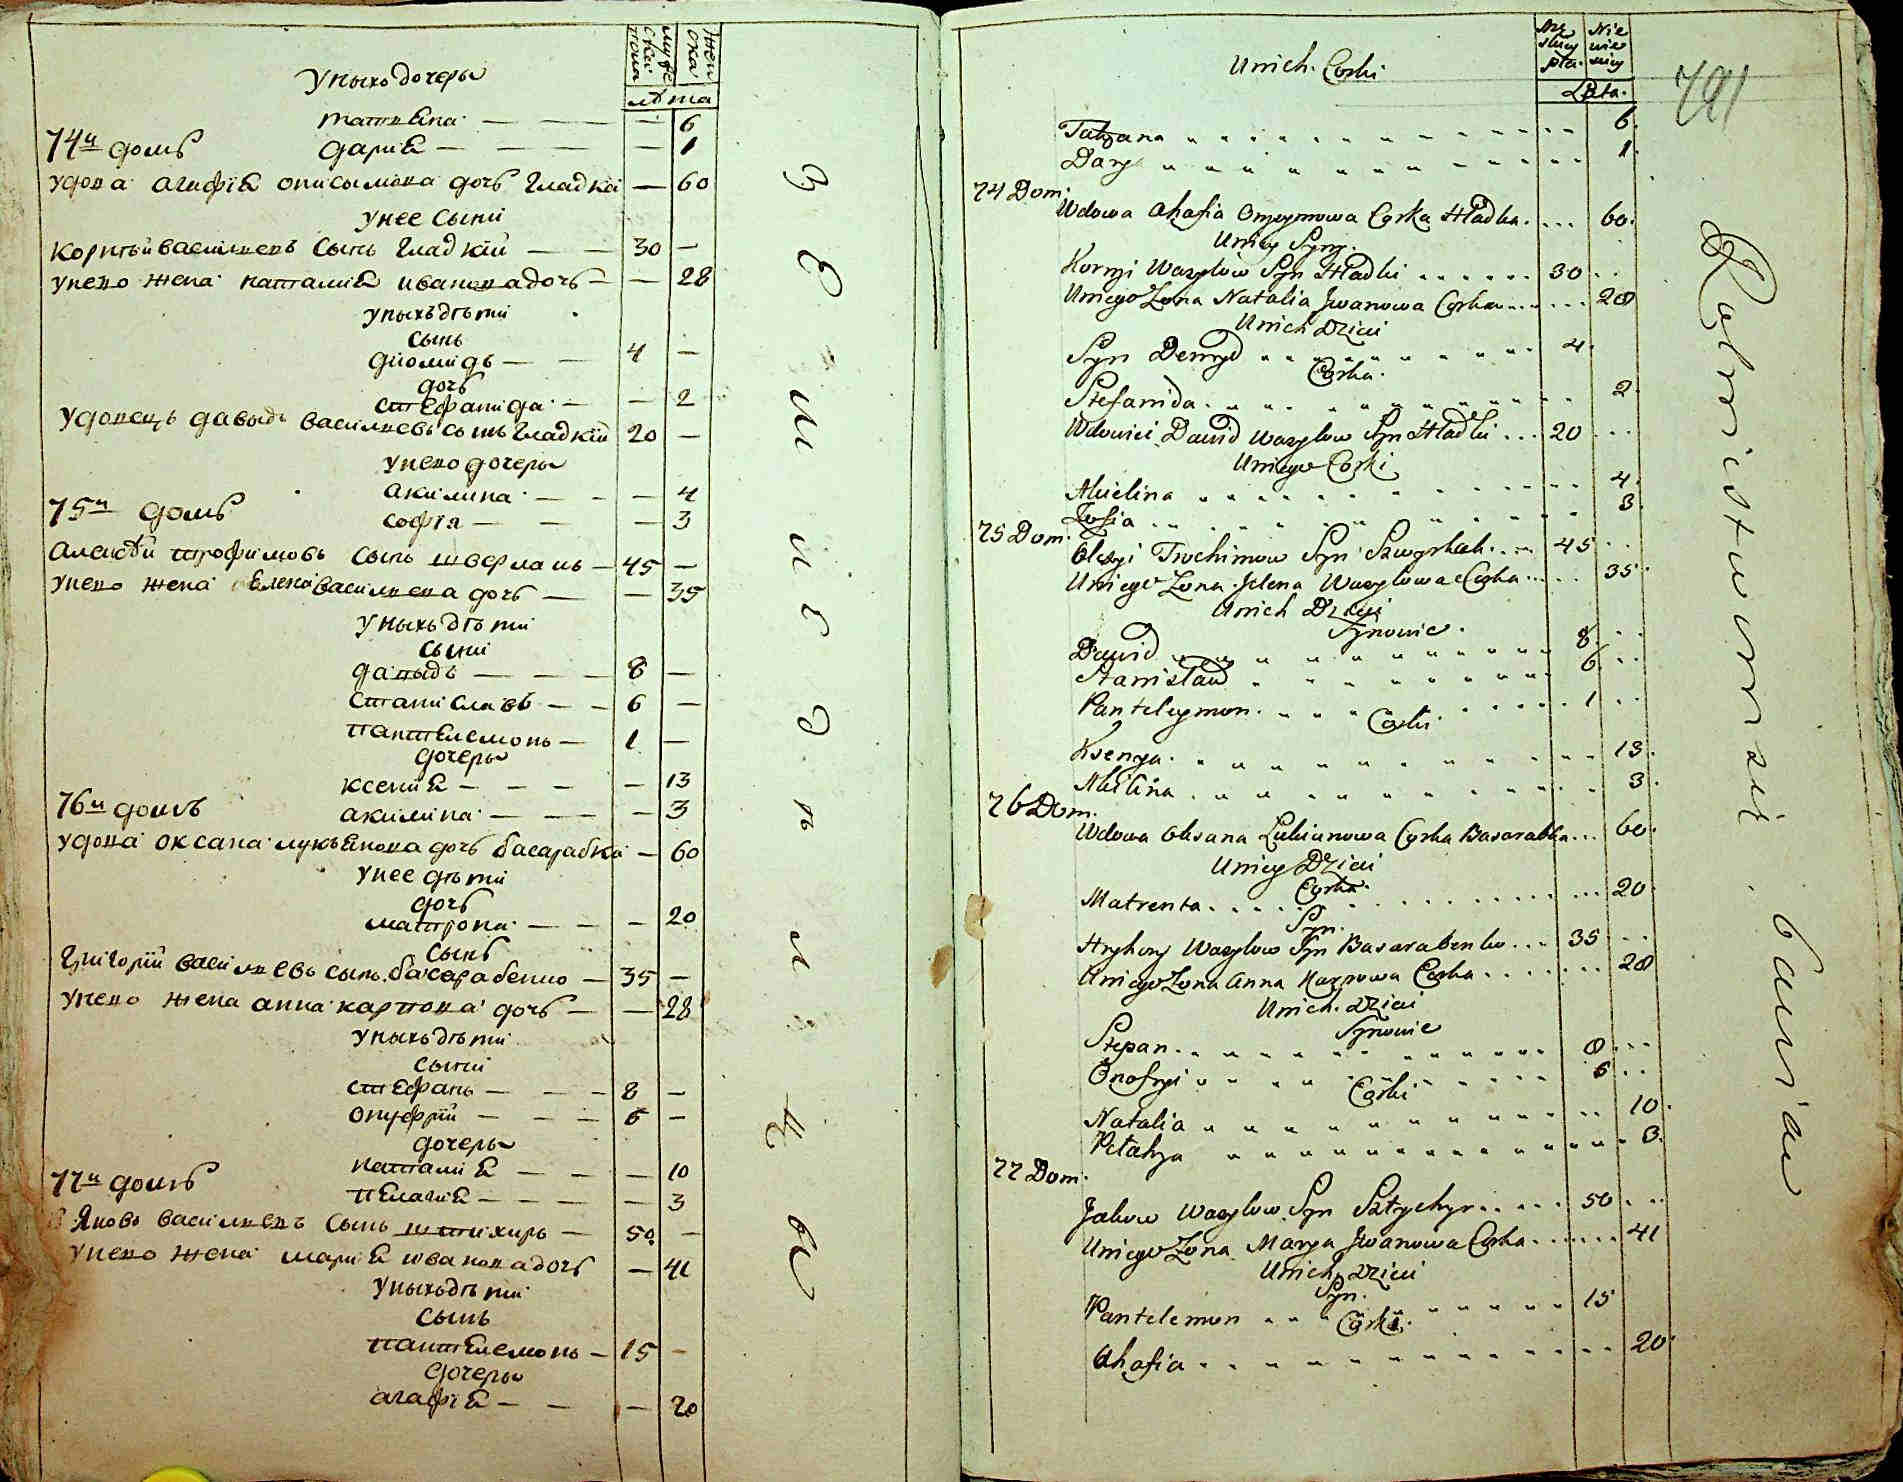 Унихъ дочеры
мужескаго пола
женска
лѣта
татиѣна — 6
74й домъ
дариѣ — 1
удова агафиѣ онисымова дочь гладка — 60
у нее сыни
корнѣй васильевъ сынъ гладкій — 30 —
у него жена наталиѣ иванова дочь — 28
у нихъ дѣти
сынъ
диомидъ — 4 —
дочъ
стефанида — 2
удовецъ давыдъ васильевъ сынъ гладкій 20 —
у него дочеры
акилина — 4
75й домъ
софія — 3
алексѣй трофимовъ сынъ шверланъ — 45 —
у него жена елена васильева дочъ — 35
у нихъ дѣти
сыни
давыдъ — 8 —
станиславъ — 6 —
пантелемонъ — 1 —
дочеры
ксениѣ — 13
76й домъ
акилина — 3
удова оксана лукъянова дочъ басарабка — 60
у нее дѣти
дочъ
матрона — 20
сынъ
григорій васильевъ сынъ басарабенко — 35 —
у него жена анна карпова дочъ — 28
у нихъ дѣти
сыни
стефанъ — 8 —
онуфрій — 6 —
дочеры
наталиѣ — 10
77й домъ
пелагиѣ — 3
яковъ васильевъ сынъ штихиръ — 50 —
у него жена мариѣ иванова дочъ — 41
у нихъ дѣти
сынъ
пантелемонъ — 15 —
дочеры
агафиѣ — 20
791
Unich Corki
Męskiey płci
Niewieściey
Lata.
Tatyana 6.
Darya 1.
74 Dom.
Wdowa Ahafia Onysymowa Corka Hładka 60.
Uniey Syny.
Korniy Wasylow Syn Hładki 30
Uniego Zona Natalia Jwanowa Corka 28
Unich Dzieci
Syn Demyd 4.
Corka.
Stefanida 2.
Wdowiec Dawid Wasylow Syn Hładki 20
Uniego Corki
Akielina 4.
Zofia 3.
75 Dom.
Olexyi Trochimow Syn 45
Uniego Zona Jelena Wasylowa Corka 35
Unich Dzieci
Synowie.
Dawid 8
Stanisław 6
Panteleymon 1
Corki
Ksenya 13.
Akilina 3.
76 Dom.
Wdowa Oksana Lukianowa Corka Basarabka 60.
Uniey Dzieci
Corka.
Matrenta 20.
Syn.
Hryhory Wasylow Syn Basarabenko 35
Uniego Zona Anna Karpowa Corka 28
Unich Dzieci
Synowie
Stepan 8
Onofryi 6
Corki
Natalia 10.
Pelahya 3.
77 Dom.
Jakow Wasylow Syn Sztychyr 50
Uniego Zona Marya Jwanowa Corka 41
Unich Dzieci
Syn.
Pantelemon 15
Corki.
Ahafia 20.